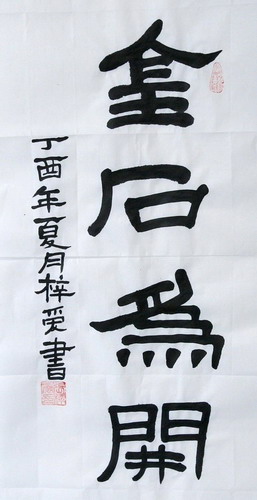 金石為開
丁酉年夏月梓受書